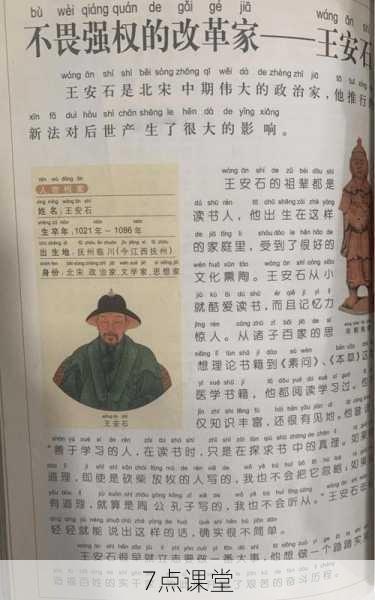 bù wèi qiáng quán de gǎi gé jiā
不畏强权的改革家——王安石
wáng ān shí shì běi sòng zhōng qī wěi dà de zhèng zhì jiā
王安石是北宋中期伟大的政治家，他推行
xīn fǎ duì hòu shì chǎn shēng le hěn dà de yǐng xiǎng
新法对后世产生了很大的影响。
人物档案
姓名：王安石
生卒年：1021年－1086年
出生地：抚州临川（今江西抚州）
身份：北宋 政治家 文学家、思想家
王安石
wáng ān shí de zǔ bèi dōu shì
王安石的祖辈都是
dú shū rén tā chū shēng zài zhè yàng
读书人，他出生在这样
de jiā tíng lǐ shòu dào le hěn hǎo de
的家庭里，受到了很好的
wén huà xūn táo wáng ān shí cóng xiǎo
文化熏陶。王安石从小
jiù kù ài dú shū ér qiě jì yì lì
就酷爱读书，而且记忆力
jīng rén cóng zhū zǐ bǎi jiā de sī
惊人。从诸子百家的思
xiǎng lǐ lùn shū jí dào sù wèn běn cǎo
想理论书籍到《素问》、《本草》这
yī xué shū jí tā dōu yuè dú xué xí guò
医学书籍，他都阅读学习过。他
jǐn zhī shi fēng fù hái hěn yǒu jiàn dì
仅知识丰富，还很有见地。他曾说
“善于学习的人，在读书时，只是在探求书中的真理。如果
道理，即使是砍柴放牧的人写的，我也不会把它忽略；如果
有道理，就算是周公孔子写的，我也不会听从。”王安石在
轻轻就能说出这样的话，确实很不简单。
王安石很早就立志要做一番大事，他想做一个踏踏实
造福百姓的实干
了艰苦的奋斗历程。
7点课堂